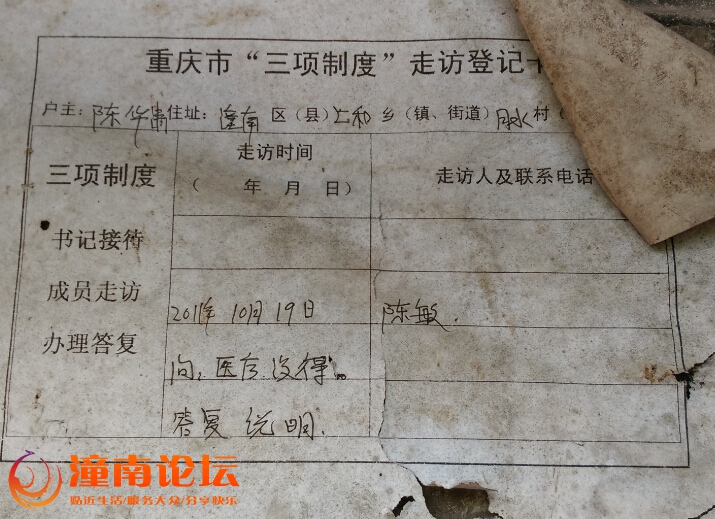 重庆市“三项制度”走访登记卡
户主：陈华帛住址：潼南区（县）上和乡（镇、街道）村（
三项制度
走访时间
（ 年 月 日）
走访人及联系电话
书记接待
成员走访
2011年10月19日
陈敏.
办理答复
问：医疗没得。
答复 说明.
潼南论坛
贴近生活/服务大众/分享快乐